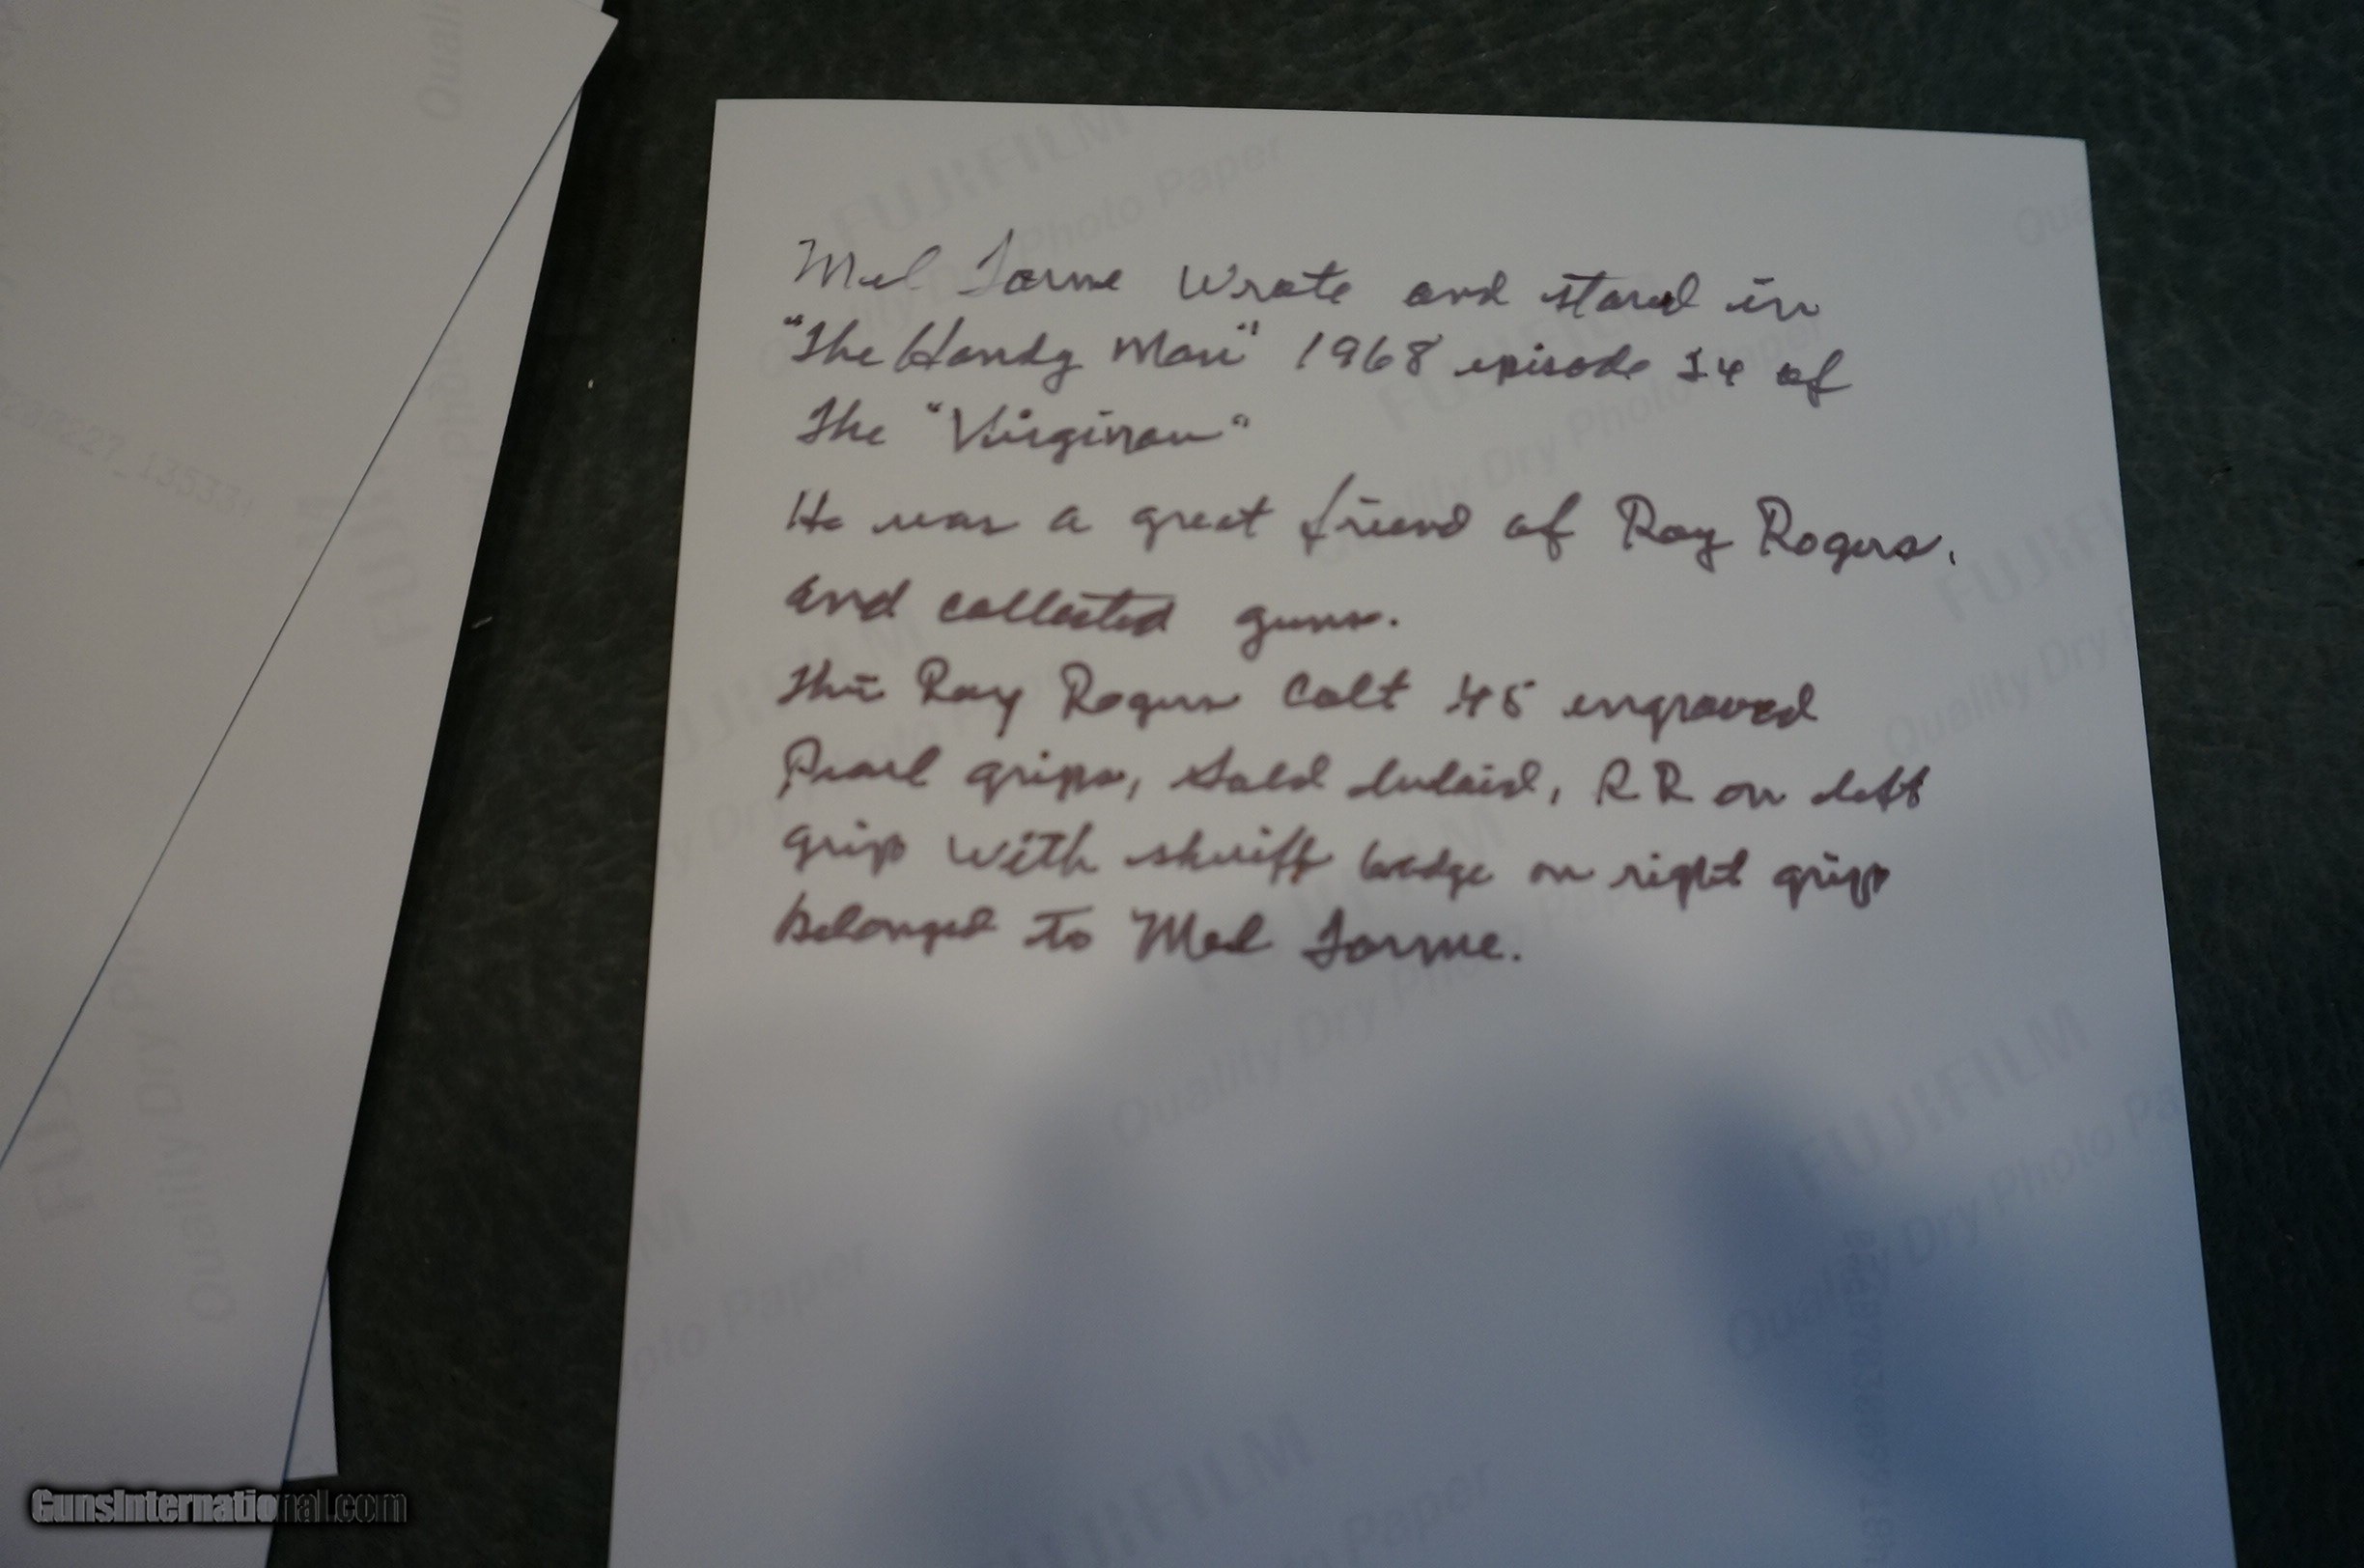 Mel Torme Wrote and stared in
"The Handy Man" 1968 episode 14 of
The "Virginian"
He was a great friend of Roy Rogers.
And collected guns.
This Roy Rogers Colt 45 engraved
Pearl grips, Gold Inlaid, RR on left
grip with sheriff badge on right grip
belonged to Mel Torme.
FUJIFILM
Quality Dry Photo Paper
GunsInternational.com